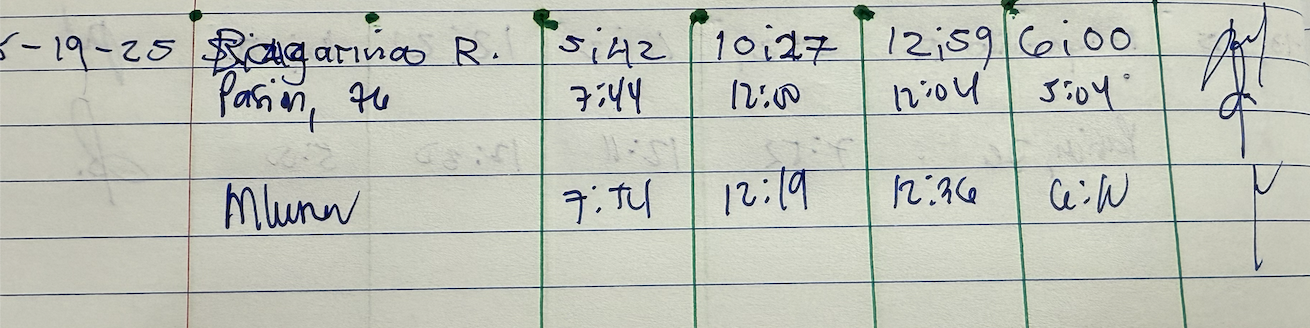 -19-25 Ragarinao R. 5:42 10:27 12:59 6:00
Pasion, 7:44 12:00 12:04 5:04
7:54 12:19 12:36